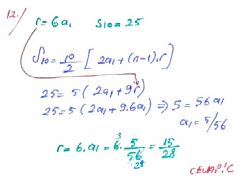 12.)
r=6a₁ S₁₀=25
S₁₀ = 10/2 [ 2a₁ + (n-1).r ]
25 = 5 ( 2a₁ + 9r )
25 = 5 ( 2a₁ + 9.6a₁ ) ⇒ 5 = 56a₁
a₁ = 5/56
r = 6.a₁ = 6. 5/56 = 15/28
3 28
CEVAP: C